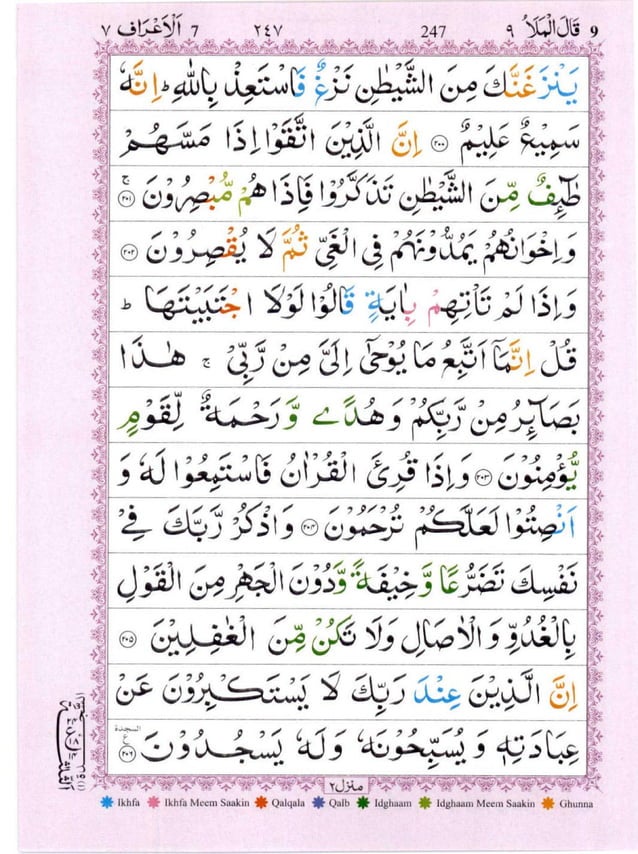 ٩ قَالَ الْمَلَاُ 9 247 ٢٤٧ ٧ اَلْاَعْرَافُ 7
يَنْزَغَنَّكَ مِنَ الشَّيْطٰنِ نَزْغٌ فَاسْتَعِذْ بِاللّٰهِ ؕ اِنَّهٗ
سَمِيْعٌ عَلِيْمٌ ٢٠٠ اِنَّ الَّذِيْنَ اتَّقَوْا اِذَا مَسَّهُمْ
طٰٓئِفٌ مِّنَ الشَّيْطٰنِ تَذَكَّرُوْا فَاِذَا هُمْ مُّبْصِرُوْنَ ۚ ٢٠١
وَاِخْوَانُهُمْ يَمُدُّوْنَهُمْ فِى الْغَىِّ ثُمَّ لَا يُقْصِرُوْنَ ٢٠٢
وَاِذَا لَمْ تَاْتِهِمْ بِاٰيَةٍ قَالُوْا لَوْلَا اجْتَبَيْتَهَا ؕ
قُلْ اِنَّمَاۤ اَتَّبِعُ مَا يُوْحٰۤى اِلَىَّ مِنْ رَّبِّىْ ۚ هٰذَا
بَصَآئِرُ مِنْ رَّبِّكُمْ وَهُدًى وَّ رَحْمَةٌ لِّقَوْمٍ
يُّؤْمِنُوْنَ ٢٠٣ وَاِذَا قُرِئَ الْقُرْاٰنُ فَاسْتَمِعُوْا لَهٗ وَ
اَنْصِتُوْا لَعَلَّكُمْ تُرْحَمُوْنَ ٢٠٤ وَاذْكُرْ رَّبَّكَ فِىْ
نَفْسِكَ تَضَرُّعًا وَّ خِيْفَةً وَّدُوْنَ الْجَهْرِ مِنَ الْقَوْلِ
بِالْغُدُوِّ وَ الْاٰصَالِ وَلَا تَكُنْ مِّنَ الْغٰفِلِيْنَ ٢٠٥
اِنَّ الَّذِيْنَ عِنْدَ رَبِّكَ لَا يَسْتَكْبِرُوْنَ عَنْ
عِبَادَتِهٖ وَ يُسَبِّحُوْنَهٗ وَلَهٗ يَسْجُدُوْنَ السجدة ع ٢٠٦
منزل ٢
Ikhfa Ikhfa Meem Saakin Qalqala Qalb Idghaam Idghaam Meem Saakin Ghunna